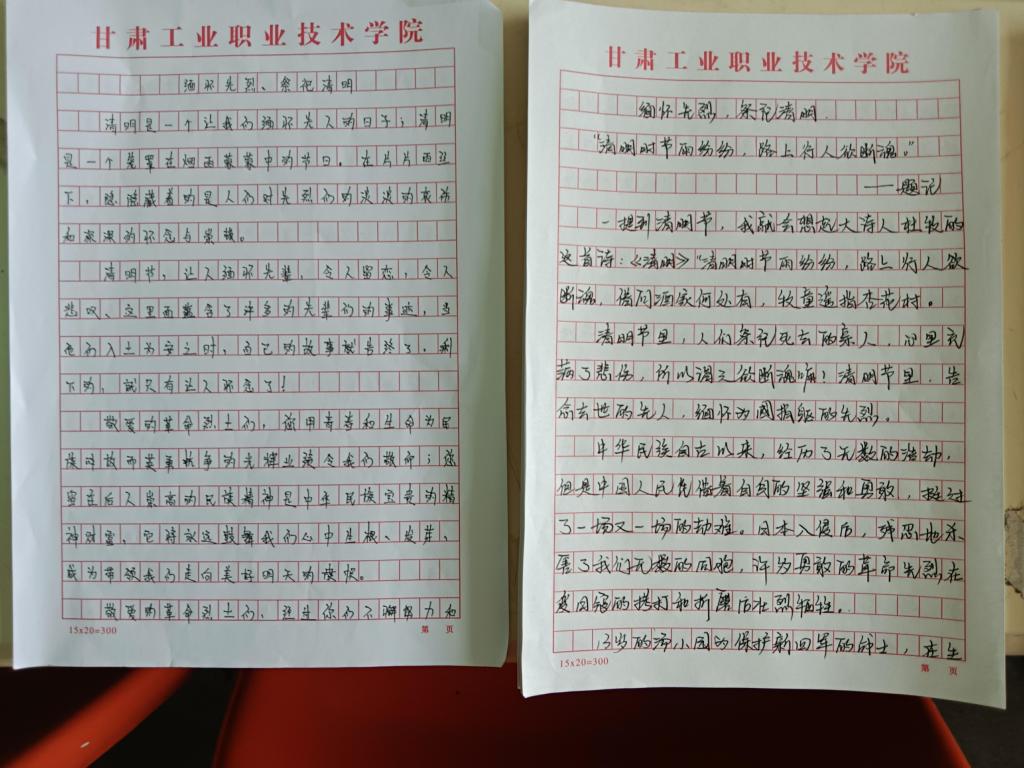 甘肃工业职业技术学院
缅怀先烈、祭祀清明
清明是一个让我们缅怀先人的日子；清明
是一个笼罩在烟雨蒙蒙中的节日。在片片雨丝
下，隐隐藏着的是人们对先烈们的淡淡的哀伤
和深深的怀念与崇敬。
清明节，让人缅怀先辈，令人留恋，令人
悲叹、这里面蕴含了许多的先辈们的事迹，当
他们入土为安之时，自己的故事就告终了，剩
下的，就只有让人怀念了！
敬爱的革命烈士们，您用青春和生命为民
族解放而英勇抗争的光辉业绩令我们敬仰；您
留在后人崇高的民族精神是中华民族宝贵的精
神财富，它将永远鼓舞我们心中生根、发芽、
成为带领我们走向美好明天的旗帜。
敬爱的革命烈士们，这是你们不懈努力和
15x20=300
第 页
甘肃工业职业技术学院
缅怀先烈，祭祀清明
“清明时节雨纷纷，路上行人欲断魂。”
——题记
一提到清明节，我就会想起大诗人杜牧的
这首诗：《清明》“清明时节雨纷纷，路上行人欲
断魂，借问酒家何处有，牧童遥指杏花村。
清明节里，人们祭祀死去的亲人，心里充
满了悲伤，所以谓之欲断魂嘛！清明节里，告
慰去世的先人，缅怀为國捐躯的先烈。
中华民族自古以来，经历了无数的浩劫，
但是中国人民凭借着自身的坚强和勇敢，挺过
了一场又一场的劫难。日本入侵后，残忍地杀
害了我们无数的同胞，许多勇敢的革命先烈在
受回寇的拷打和折磨后壮烈牺牲。
13岁的 小 为保护新四军的战士，在生
15x20=300
第 页